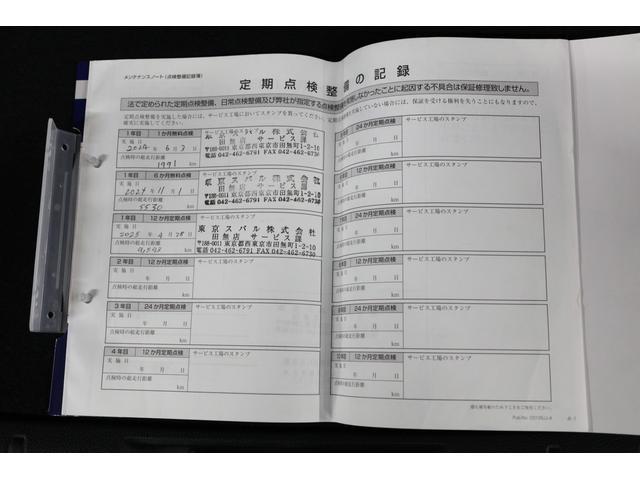 メンテナンスノート(点検整備記録簿)
定期点検整備の記録
法で定められた定期点検整備、日常点検整備及び弊社が指定する点検整備を実施しなかったことに起因する不具合は保証修理致しません。
定期点検整備を実施した場合には、サービス工場においてスタンプを買ってください。
実施していない場合には、保証を受ける権利を失うことにもなりますので、
実施してください。
1年目 1か月無料点検
サービス工場のスタンプ
東京スバル株式会社
田無店 サービス課
〒188-0011 東京都西東京市田無町1-2-10
電話 042-462-6791 FAX 042-462-6730
実施日
2024年 6月 2日
点検時の総走行距離
1991 km
1年目 6か月無料点検
サービス工場のスタンプ
東京スバル株式会社
田無店 サービス課
〒188-0011 東京都西東京市田無町1-2-10
電話 042-462-6791 FAX 042-462-6730
実施日
2024年 11月 1日
点検時の総走行距離
5530 km
1年目 12か月定期点検
サービス工場のスタンプ
東京スバル株式会社
田無店 サービス課
〒188-0011 東京都西東京市田無町1-2-10
電話 042-462-6791 FAX 042-462-6730
実施日
2025年 4月 28日
点検時の総走行距離
km
2年目 12か月定期点検
サービス工場のスタンプ
実施日
年 月 日
点検時の総走行距離
km
3年目 24か月定期点検
サービス工場のスタンプ
実施日
年 月 日
点検時の総走行距離
km
4年目 12か月定期点検
サービス工場のスタンプ
実施日
年 月 日
点検時の総走行距離
km
24か月定期点検
サービス工場のスタンプ
年 月 日
総走行距離
km
12か月定期点検
サービス工場のスタンプ
年 月 日
総走行距離
km
24か月定期点検
サービス工場のスタンプ
年 月 日
総走行距離
km
8年目 12か月定期点検
サービス工場のスタンプ
実施日
年 月 日
点検時の総走行距離
km
9年目 24か月定期点検
サービス工場のスタンプ
実施日
年 月 日
点検時の総走行距離
km
10年目 12か月定期点検
サービス工場のスタンプ
実施日
年 月 日
点検時の総走行距離
km